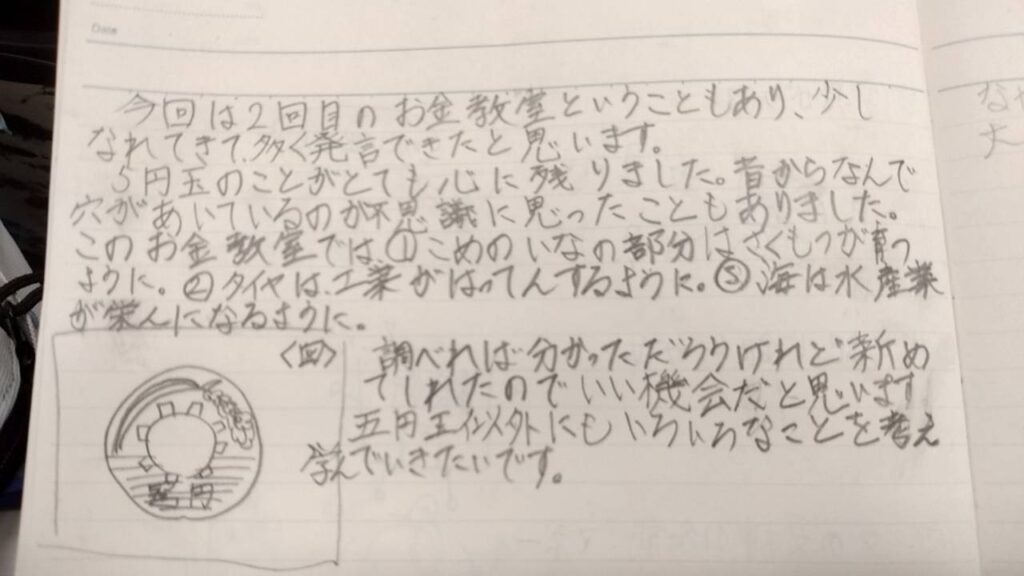 Date
今回は2回目のお金教室ということもあり、少し
なれてきて、多く発言できたと思います。
5円玉のことがとても心に残りました。昔からなんで
穴があいているのが不思議に思ったこともありました。
このお金教室では①こめのいなの部分はさくもつが育つ
ように。②タイヤは工業がはってんするように。③海は水産業
が栄んになるように。
〈図〉
調べれば分かっただろうけれど新め
てしれたのでいい機会だと思います
五円玉イがいにもいろいろなことを考え
学んでいきたいです。
五円